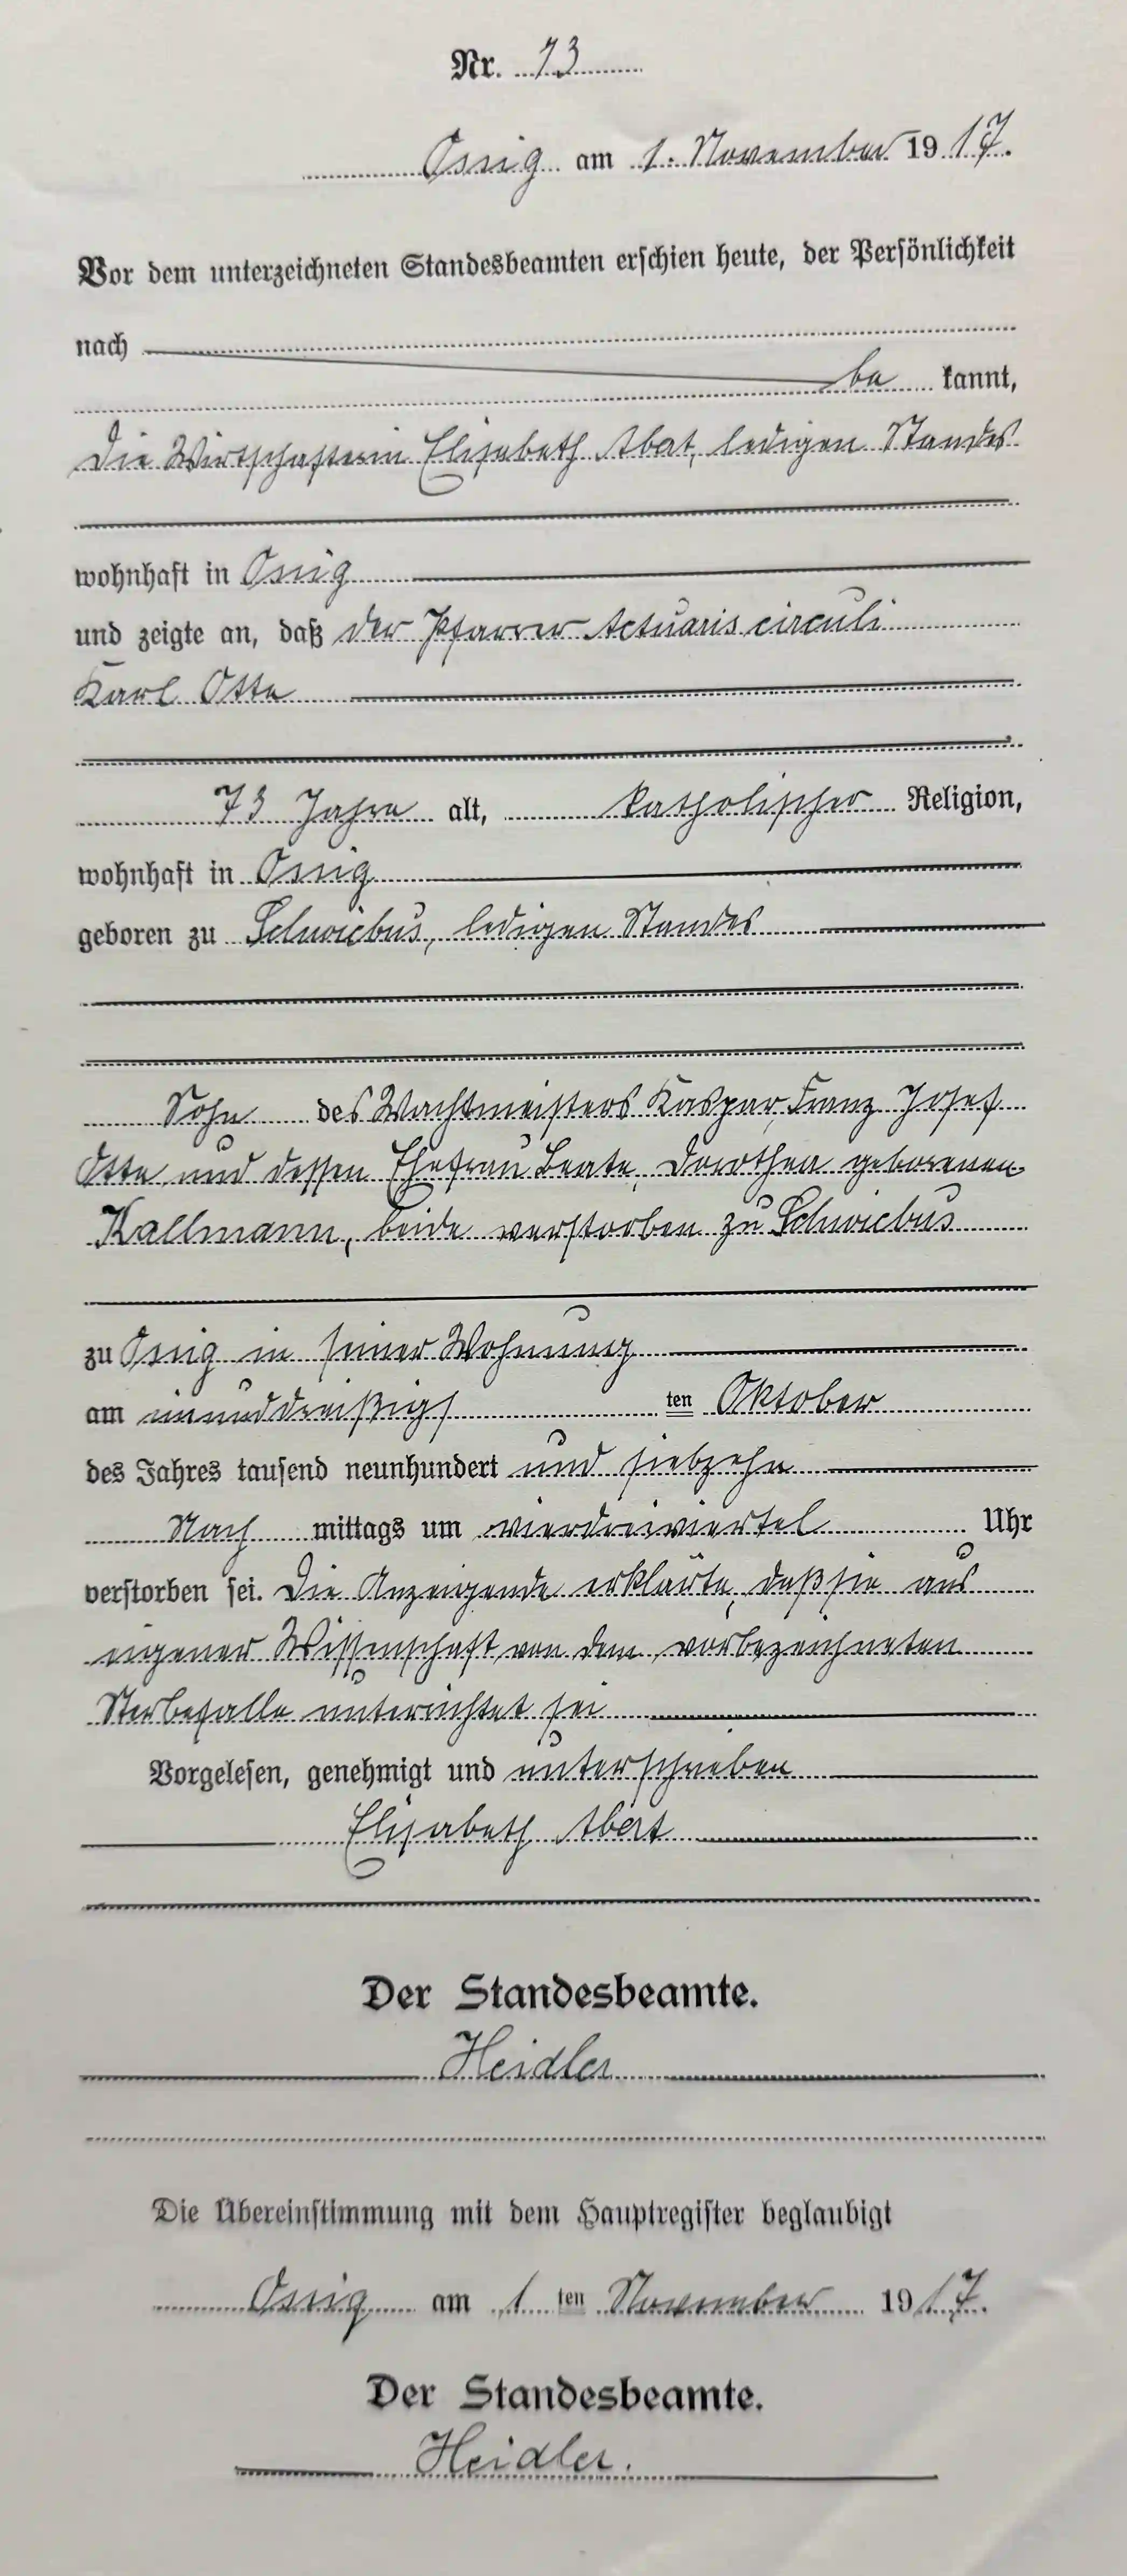 Nr. 13
Ossig am 1. November 1917.
Vor dem unterzeichneten Standesbeamten erschien heute, der Persönlichkeit
nach
be kannt,
die Wirtschafterin Elisabeth Abert, ledigen Standes
wohnhaft in Ossig
und zeigte an, daß der Pfarrer Actuaris circuli
Karl Otte
73 Jahre alt, katholischer Religion,
wohnhaft in Ossig
geboren zu Schwiebus, ledigen Standes
Sohn des Wachtmeisters Kaspar, Franz Josef
Otte und dessen Ehefrau Beate, Dorothea geborenen
Kallmann, beide verstorben zu Schwiebus
zu Ossig in seiner Wohnung
am einunddreißigs ten Oktober
des Jahres tausend neunhundert und siebzehn
Nach mittags um vierdreiviertel Uhr
verstorben sei. Die Anzeigende erklärte, daß sie aus
eigener Wissenschaft von dem vorbezeichneten
Sterbefalle unterrichtet sei
Vorgelesen, genehmigt und unterschrieben
Elisabeth Abert
Der Standesbeamte.
Heidler
Die Übereinstimmung mit dem Hauptregister beglaubigt
Ossig am 1 ten November 1917.
Der Standesbeamte.
Heidler.